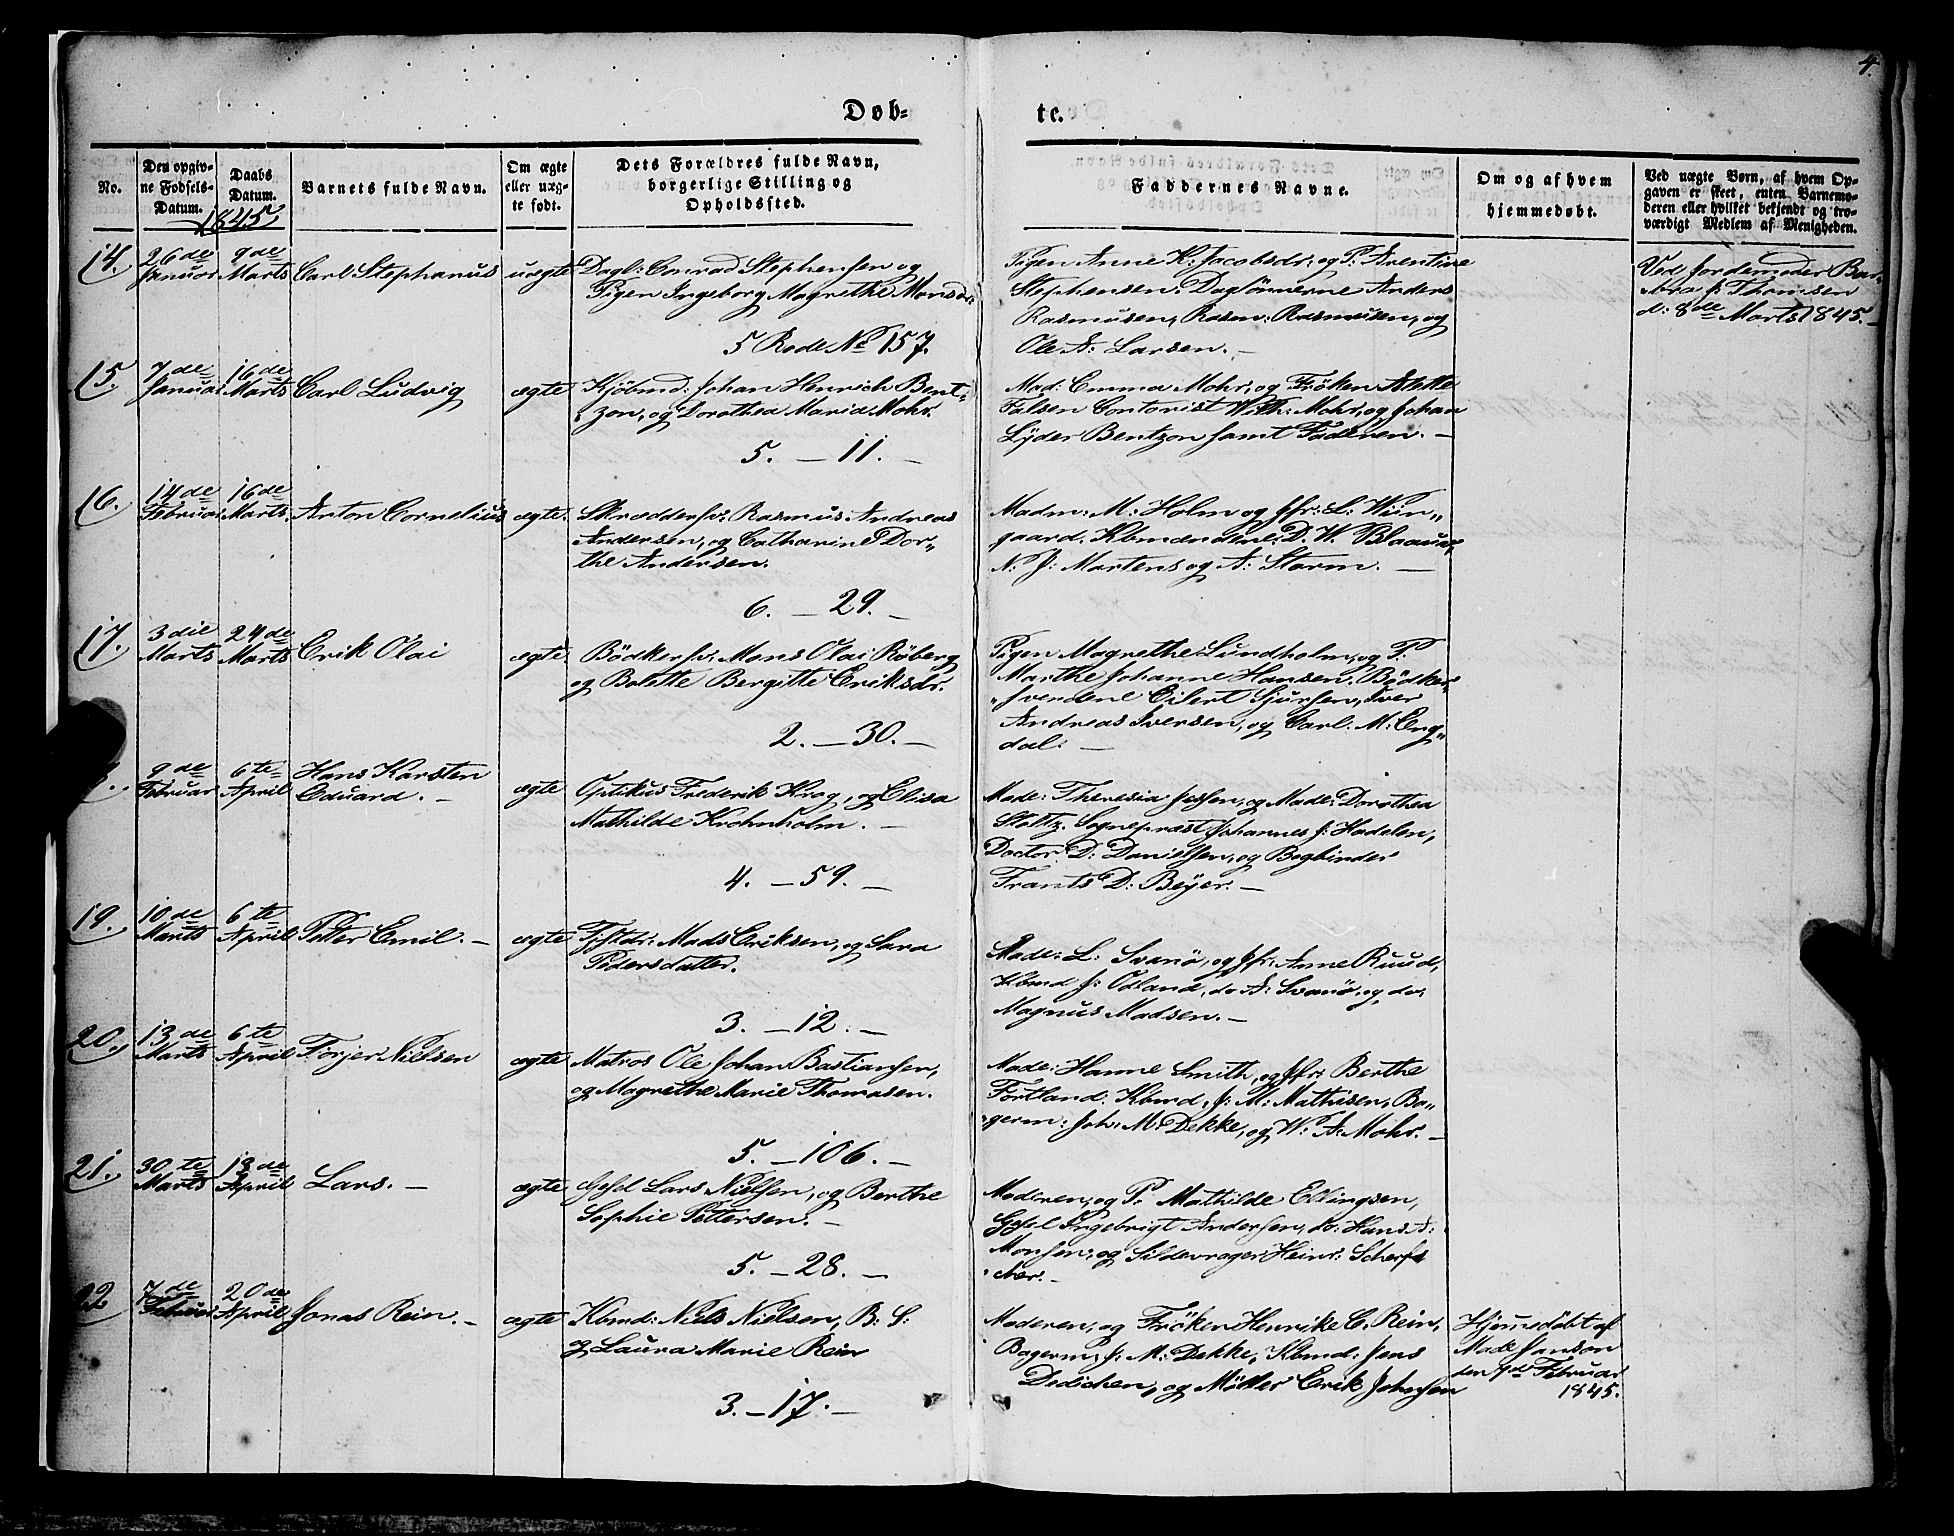 4.
Døb-
te.
No.
Den opgiv-
ne Fødsels-
Datum.
Daabs
Datum.
1845
Barnets fulde Navn.
Om ægte
eller uæg-
te født.
Dets Forældres fulde Navn,
borgerlige Stilling og
Opholdssted.
Faddernes Navne.
Om og af hvem
hjemmedøbt.
Ved uægte Børn, af hvem Op-
gaven er skeet, enten Barnemo-
deren eller hvilket bekjendt og tro-
værdigt Medlem af Menigheden.
14.
26de
Januar
9de
Marts
Carl Stephanus
uægte
Dagl: Conrad Stephensen og
Pigen Ingeborg Magrethe Monsdr.
5 Rode No 157.
Pigen Anne K: Jacobsdr. og P: Arentine
Stephensen. Daglönnerne Anders
Rasmusen, Rasm: Rasmusen, og
Ole A: Larsen. —
Ved Jordemoder Bar-
bra J: Thomsen
d: 8de Marts 1845. —
15.
7de
Januar
16de
Marts
Carl Ludvig
ægte
Kjöbmd: Johan Henrich Bent-
zon, og Dorothea Maria Mohr.
5. — 11. —
Mad: Emma Mohr, og Fröken Alette
Falsen Contorist Wilh: Mohr, og Johan
Lyder Bentzon samt Faderen. —
16.
14de
Februar
16de
Marts.
Anton Cornelius
ægte.
Skræddersv: Rasmus Andreas
Andersen, og Catharine Dor-
the Andersen.
6. — 29. —
Madm: M: Holm og Jfr: L: Wiin-
gaard. Kbmændene D. W. Blaauw,
N: J: Martens og A: Storm. —
17.
3die
Marts
24de
Marts
Erik Olai
ægte
Bödkersv: Mons Olai Röberg
og Bolette Bergitte Eriksdr.
2. — 30. —
Pigen Magrethe Lundholm, og P.
Marthe Johanne Hansen. Bödker-
svendene Eilert Sjursen, Iver
Andreas Iversen, og Carl. M: Eng-
dal. —
9de
Februar
6te
April
Hans Karsten
Eduard. —
ægte
Optikus Frederik Krag, og Elisa
Mathilde Krohnholm. —
4. — 59. —
Made: Theresia Jessen, og Made: Dorothea
Stoltz. Sognepræst Johannes J: Hadelen,
Doctor D: Danielsen, og Bogbinder
Frants D: Beyer. —
19.
10de
Marts
6te
April
Petter Emil. —
ægte
Fjstdr: Mads Eriksen, og Sara
Pedersdatter.
3. — 12. —
Made: L: Svanö, og Jfr: Anne Ruud,
Kbmd J: Odland, do A: Svanö, og do:
Magnus Madsen. —
20.
13de
Marts
6te
April
Torjer Nielsen
ægte
Matros Ole Johan Bastiansen,
og Magrethe Marie Thomasen.
5. — 106. —
Made: Hanne Smith, og Jfr: Berthe
Fortland. Kbmd. J: M: Mathisen, Ba-
germ: Joh: M: Dekke, og W: A: Mohr. —
21.
30te
Marts
13de
April
Lars. —
ægte
Gesel Lars Nielsen, og Berthe
Sophie Pettersen. —
5. — 28. —
Moderen, og P. Mathilde Ellingsen,
Gesel Ingebrigt Andersen, do: Hans A:
Monsen, og Sildevrager Heinr: Scherf
ner. —
22
7de
Februar
20de
April
Jonas Rein. —
ægte
Kbmd: Niels Nielsen, B: S:
og Laura Marie Rein
3. — 17. —
Moderen, og Fröken Henrike C. Rein,
Bagerm: J: M: Dekke, Kbmd: Jens
Dedichen, og Mötter Erik Johnsen
Hjemedöbt af
Made Janson
den 9de Februar
1845.